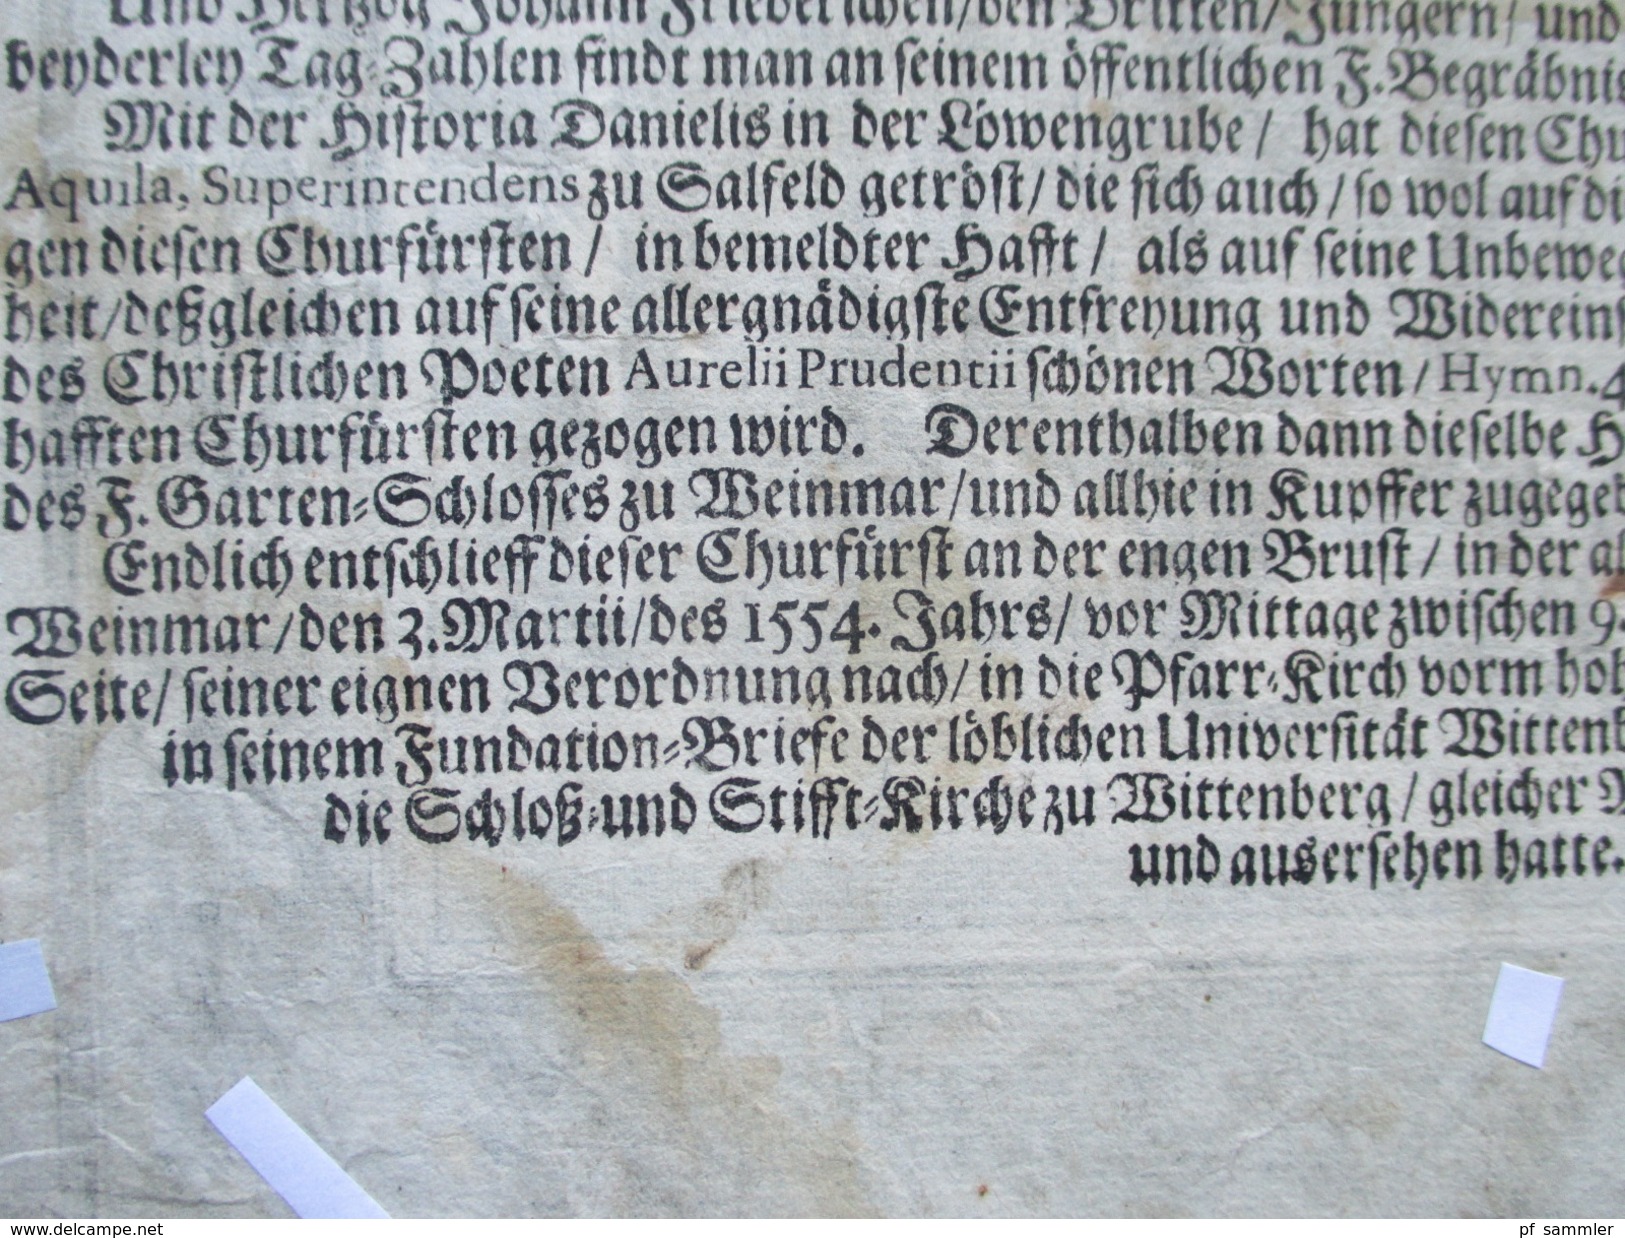 Und Hertzog Johann Friederichen/den Dritten/Jüngern/ und
beyderley Tag-Zahlen findt man an seinem öffentlichen F. Begräbnis
Mit der Historia Danielis in der Löwengrube/ hat diesen Chu
Aquila, Superintendens zu Salfeld getröst/die sich auch/so wol auf di
gen diesen Churfürsten/ in bemeldter Hafft/ als auf seine Unbeweg
heit/deßgleichen auf seine allergnädigste Entfreyung und Widereins
des Christlichen Poeten Aurelii Prudentii schönen Worten/Hymn. 4
hafften Churfürsten gezogen wird. Derenthalben dann dieselbe H
des F. Garten-Schlosses zu Weinmar/und allhie in Kupffer zugegeb
Endlich entschlieff dieser Churfürst an der engen Brust/in der al
Weinmar/den 3. Martii/des 1554. Jahrs/ vor Mittage zwischen 9.
Seite/seiner eignen Verordnung nach/in die Pfarr-Kirch vorm hoh
in seinem Fundation-Briefe der löblichen Universität Wittenb
die Schloß-und Stifft-Kirche zu Wittenberg/gleicher
und ausersehen hatte.
www.delcampe.net
pf_sammler